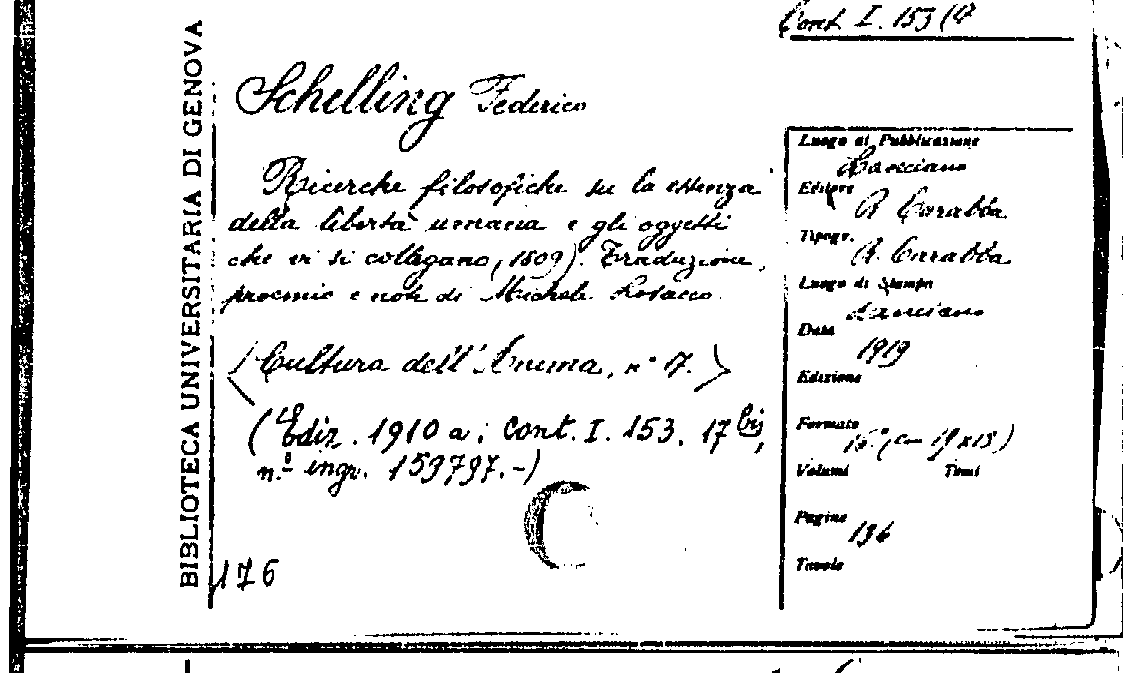 Cont. I. 153 (17
BIBLIOTECA UNIVERSITARIA DI GENOVA
Schelling Federico
Ricerche filosofiche su la essenza
della libertà umana e gli oggetti
che vi si collegano, 1809). Traduzione,
proemio e note di Michele Losacco.
(Cultura dell'Anima, n° 17.)
(Ediz. 1910 a: cont. I. 153. 17 bis,
n.º ingr. 159797.-)
176
Luogo di Pubblicazione
Lanciano
Editore
R. Carabba
Tipogr.
R. Carabba
Luogo di Stampa
Lanciano
Data
1919
Edizione
Formato
16° (cm 19x13)
Volumi Tomi
Pagine
136
Tavole